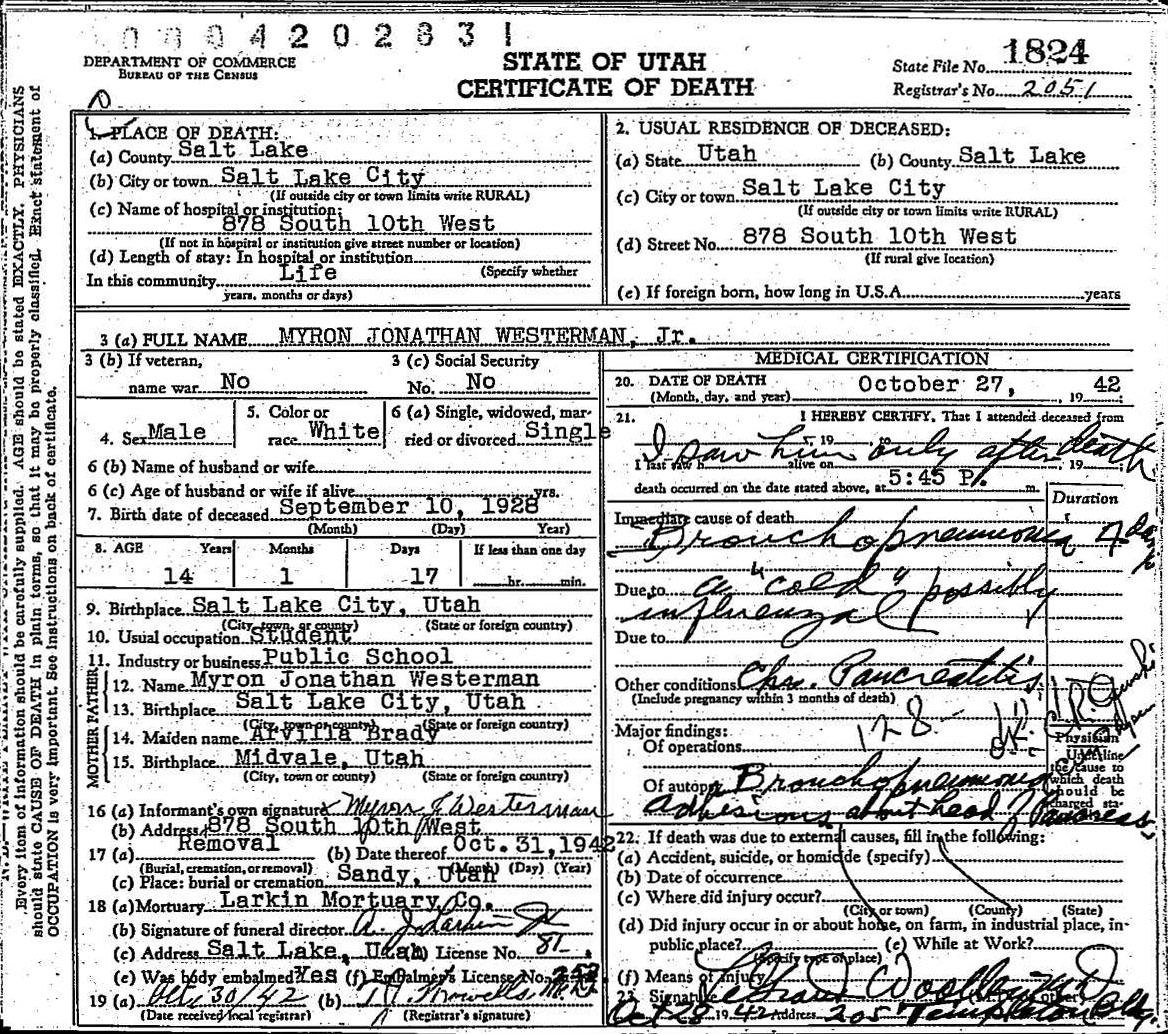 0004202831
DEPARTMENT OF COMMERCE
BUREAU OF THE CENSUS
STATE OF UTAH
CERTIFICATE OF DEATH
State File No. 1824
Registrar's No. 2051
1. PLACE OF DEATH:
(a) County Salt Lake
(b) City or town Salt Lake City
(If outside city or town limits write RURAL)
(c) Name of hospital or institution:
878 South 10th West
(If not in hospital or institution give street number or location)
(d) Length of stay: In hospital or institution
(Specify whether
In this community Life
years, months or days)
2. USUAL RESIDENCE OF DECEASED:
(a) State Utah (b) County Salt Lake
(c) City or town Salt Lake City
(If outside city or town limits write RURAL)
(d) Street No. 878 South 10th West
(If rural give location)
(e) If foreign born, how long in U.S.A. years
3 (a) FULL NAME MYRON JONATHAN WESTERMAN, Jr.
3 (b) If veteran,
name war No
3 (c) Social Security
No. No
4. Sex Male
5. Color or
race White
6 (a) Single, widowed, mar-
ried or divorced Single
6 (b) Name of husband or wife
6 (c) Age of husband or wife if alive yrs.
7. Birth date of deceased September 10, 1928
(Month) (Day) Year)
8. AGE Years Months Days If less than one day
14 1 17 hr. min.
9. Birthplace Salt Lake City, Utah
(City, town, or county) (State or foreign country)
10. Usual occupation Student
11. Industry or business Public School
FATHER
12. Name Myron Jonathan Westerman
13. Birthplace Salt Lake City, Utah
(City, town or county) (State or foreign country)
MOTHER
14. Maiden name Arvilla Brady
15. Birthplace Midvale, Utah
(City, town or county) (State or foreign country)
16 (a) Informant's own signature Myron J Westerman
(b) Address 878 South 10th West
17 (a) Removal (b) Date thereof Oct. 31, 1942
(Burial, cremation, or removal) (Month) (Day) (Year)
(c) Place: burial or cremation Sandy, Utah
18 (a) Mortuary Larkin Mortuary Co.
(b) Signature of funeral director A. J. Larkin Jr
(c) Address Salt Lake, Utah (d) License No. 81
(e) Was body embalmed? Yes (f) Embalmer's License No. 253
19 (a) Oct 30/42 (b)
(Date received local registrar) (Registrar's signature)
MEDICAL CERTIFICATION
20. DATE OF DEATH October 27, 19 42
(Month, day, and year)
21. I HEREBY CERTIFY, That I attended deceased from
, 19 to
I saw him only after death
I last saw h alive on , 19
death occurred on the date stated above, at 5:45 P. m.
Duration
Immediate cause of death
Bronchopneumonia 4 da
Due to a "cold" possibly
influenzal
Due to
Other conditions Chr. Pancreatitis
(Include pregnancy within 3 months of death)
128
Major findings:
Of operations
Of autopsy Bronchopneumonia
adhesions about head of Pancreas
Physician
Underline
the cause to
which death
should be
charged sta-
22. If death was due to external causes, fill in the following:
(a) Accident, suicide, or homicide (specify)
(b) Date of occurrence
(c) Where did injury occur?
(City or town) (County) (State)
(d) Did injury occur in or about home, on farm, in industrial place, in-
public place? (e) While at Work?
(Specify type of place)
(f) Means of Injury
23. Signature
Oct 28 1942 Address 205 Templeton Bldg.
Every item of information should be carefully supplied. AGE should be stated EXACTLY. PHYSICIANS
should state CAUSE OF DEATH in plain terms, so that it may be properly classified. Exact statement of
OCCUPATION is very important. See instructions on back of certificate.